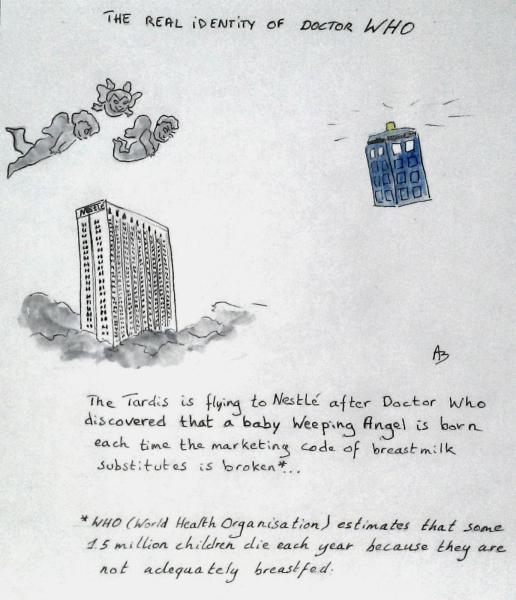 THE REAL IDENTITY OF DOCTOR WHO
Nestlé
AB
The Tardis is flying to Nestlé after Doctor Who
discovered that a baby Weeping Angel is born
each time the marketing code of breastmilk
substitutes is broken*...
*WHO (World Health Organisation) estimates that some
1.5 million children die each year because they are
not adequately breastfed.